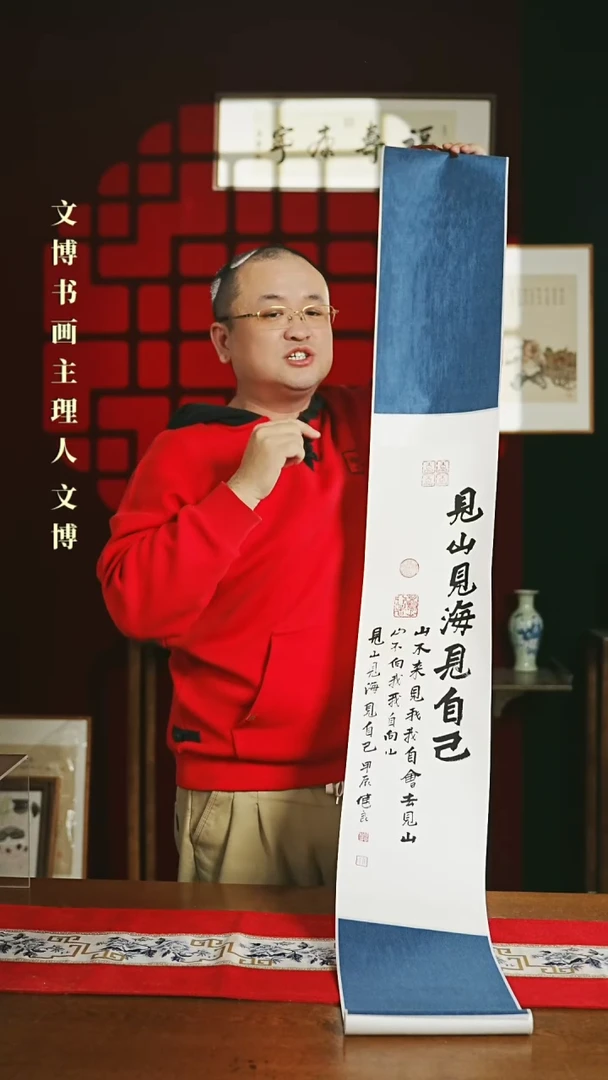 文博书画主理人文博
福寿康宁
見山見海見自己
山不来見我我自會去見山
山不向我我自向山
見山見海見自己甲辰健良